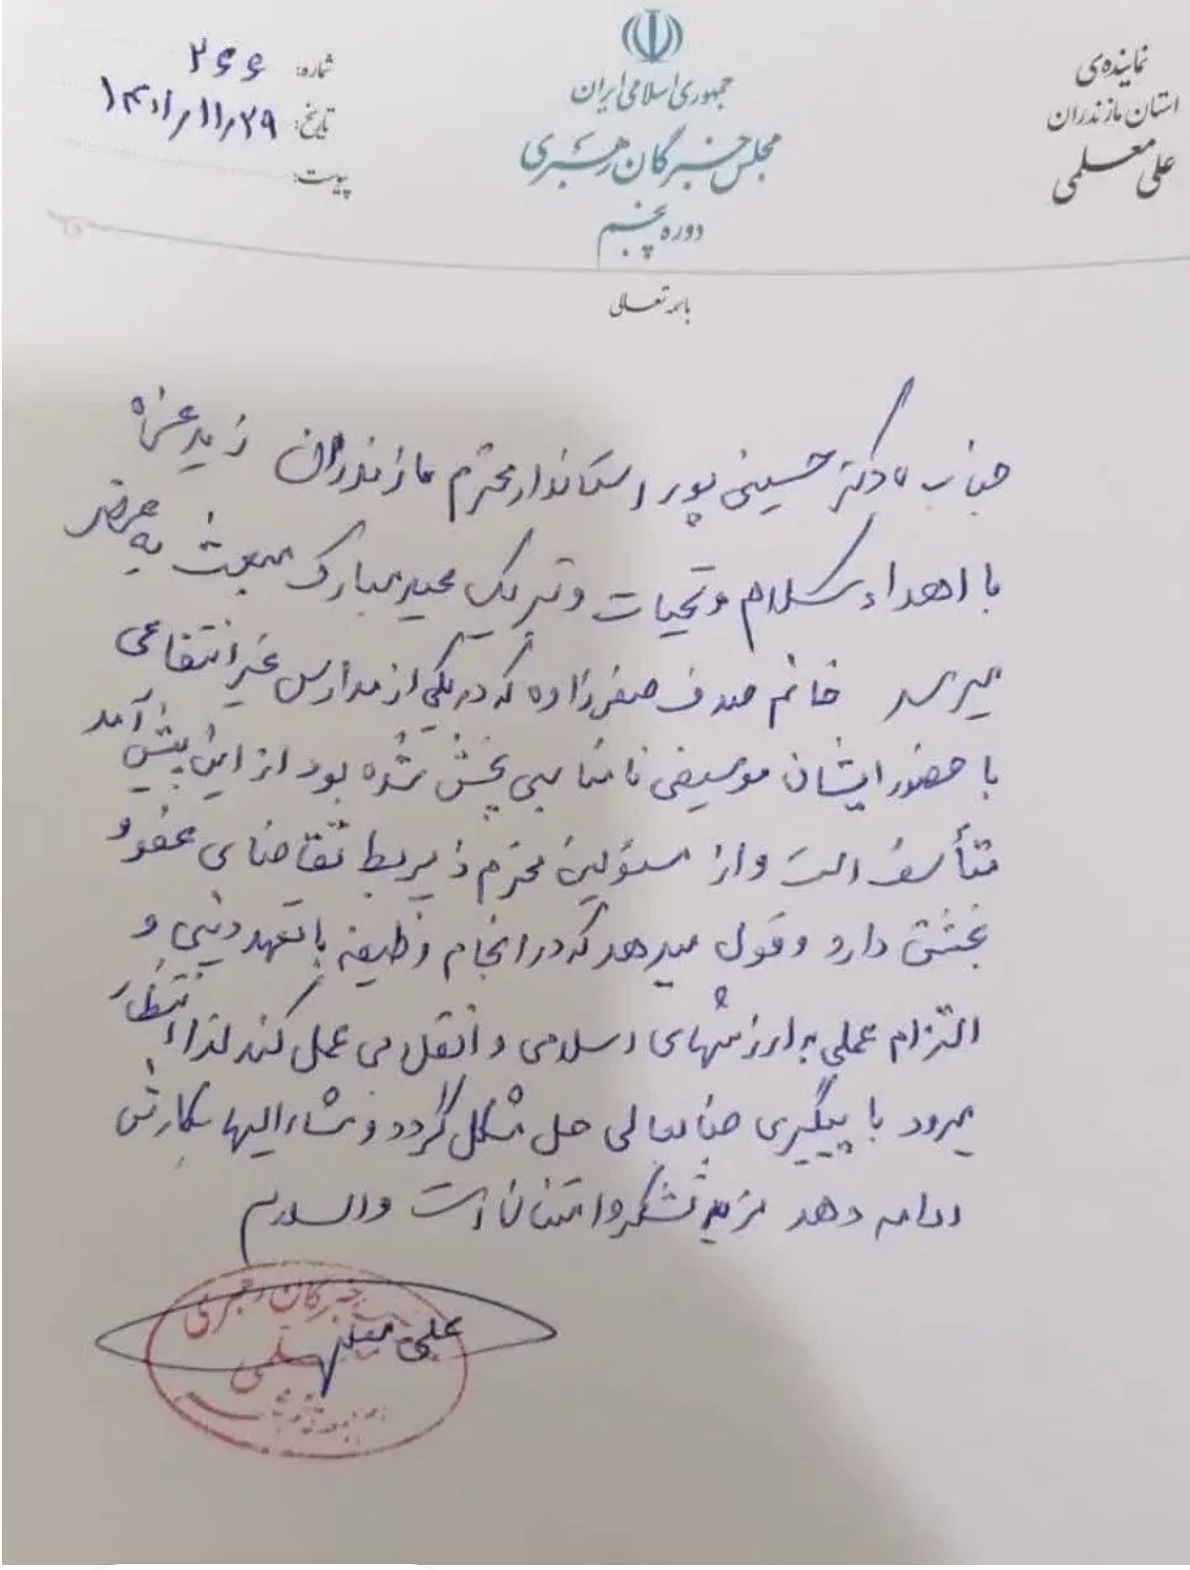 نماینده‌ی
استان مازندران
علی معلمی
جمهوری اسلامی ایران
مجلس خبرگان رهبری
دوره پنجم
شماره: ۲۶۶
تاریخ: ۱۴۰۱/۱۱/۲۹
پیوست:
باسمه تعالی
جناب آقای دکتر حسینی پور استاندار محترم مازندران زید عزه
با اهداء سلام و تحیات و تبریک عید مبارک مبعث به عرض
میرسد خانم صدف صفرزاده که در یکی از مدارس غیرانتفاعی
با حضور ایشان موسیقی نامناسبی پخش شده بود از این پیش آمد
متأسف است و از مسؤلین محترم ذیربط تقاضای عفو و
بخشش دارد و قول میدهد که در انجام وظیفه با تعهد دینی و
التزام عملی به ارزشهای اسلامی و انقلابی عمل کند لذا انتظار
میرود با پیگیری جنابعالی حل مشکل گردد و مشارالیها بکارش
ادامه دهد مزید تشکر و امتنان است والسلام
علی معلمی
خبرگان رهبری